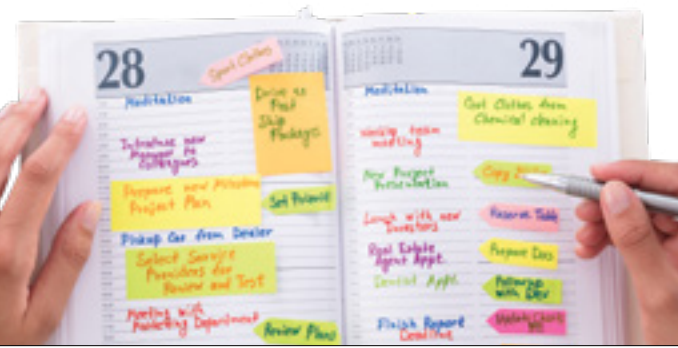 28
Sport Clothes
Meditation
Drive to
Post
Ship
Packages
Introduce new
Manager to
Colleagues
Prepare new Milestone
Project Plan
Set Priority
Pickup Car from Dealer
Select Service
Providers for
Review and Test
Meeting with
Marketing Department
Review Plans
29
Meditation
Get Clothes from
Chemical cleaning
Weekly team
meeting
New Project
Presentation
Copy
Lunch with new
Investors
Reserve Table
Real Estate
Agent Appt.
Prepare Docs
Dentist Appt.
Followup
with Dev
Finish Report
Deadline
Update